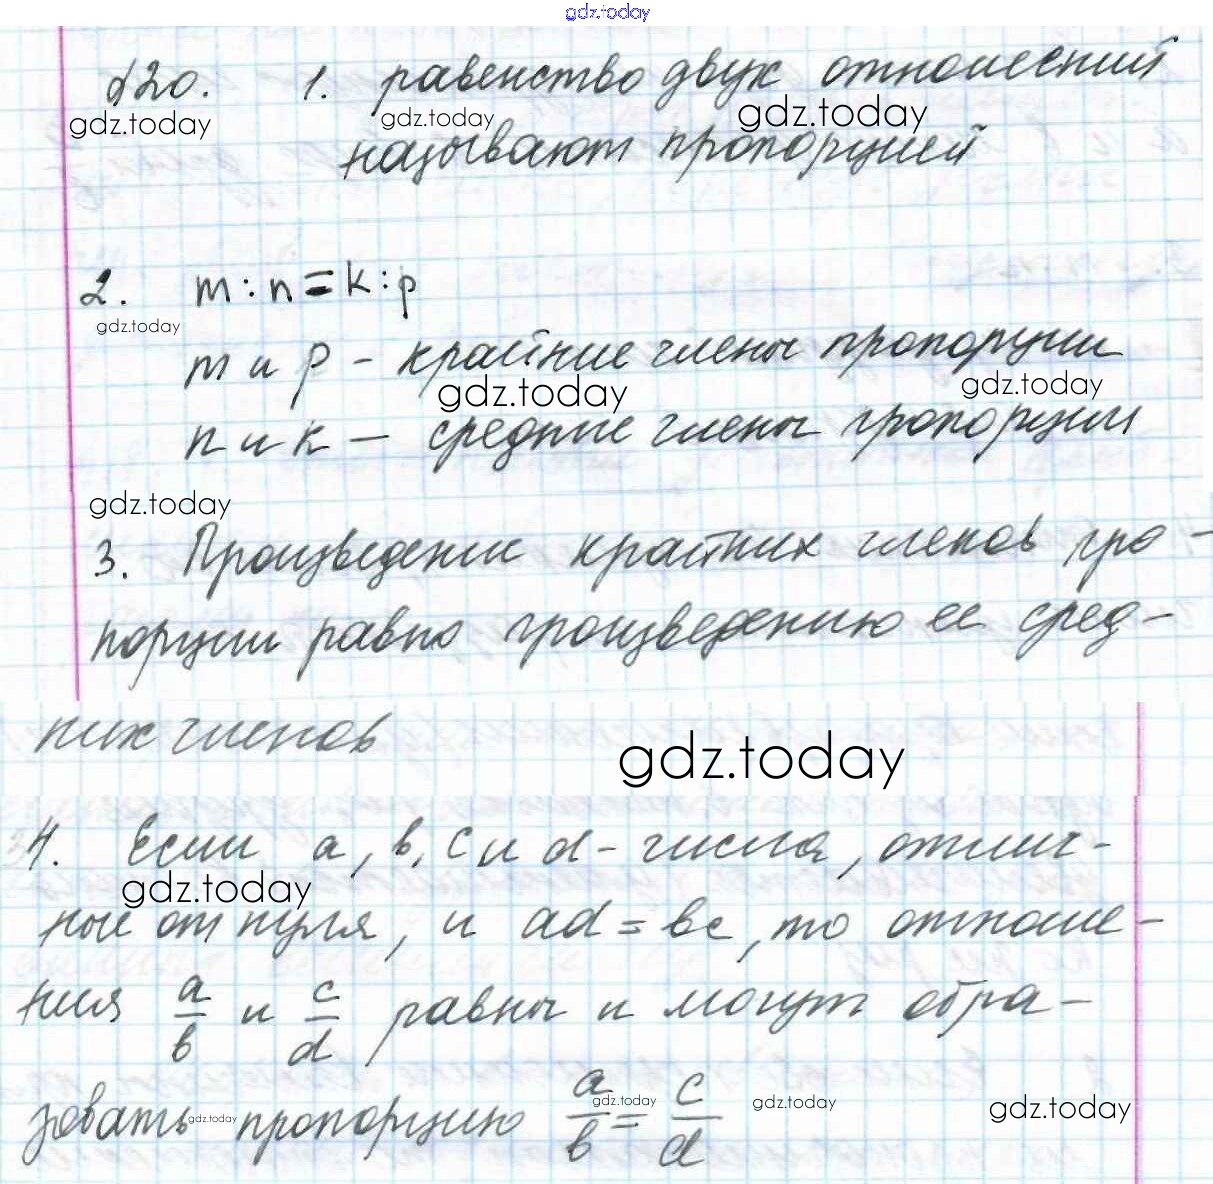 gdz.today
§20. 1. равенство двух отношений
gdz.today gdz.today gdz.today
называют пропорцией
2. m : n = k : p
gdz.today
m и p – крайние члены пропорции
gdz.today gdz.today
n и k – средние члены пропорции
gdz.today
3. Произведение крайних членов про-
порции равно произведению ее сред-
них членов
gdz.today
4. Если a, b, c и d – числа, отлич-
gdz.today
ные от нуля, и ad = bc, то отноше-
ния a/b и c/d равны и могут обра-
зовать пропорцию a/b = c/d
gdz.today gdz.today gdz.today gdz.today